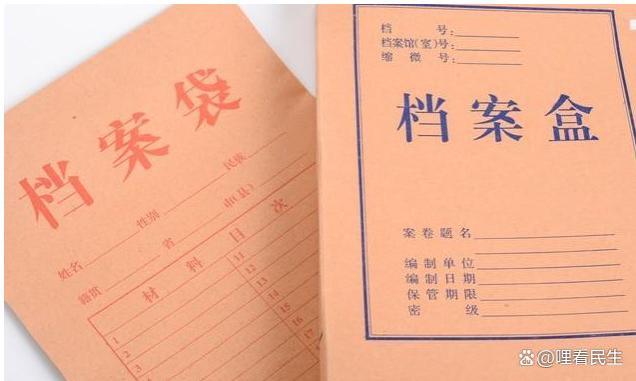 档案袋
姓名 性别 民族
籍贯 省 市(县)
材料目次
1
2
3
11
12
13
14
15
16
17
档 号:
档案馆(室)号:
缩 微 号:
档案盒
案卷题名
编制单位
编制日期
保管期限
密 级
哩看民生